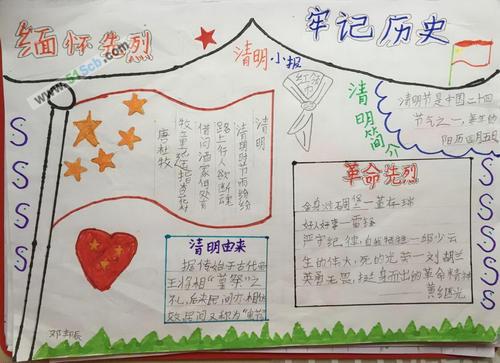 缅怀先烈
牢记历史
清明小报
www.51Scb.com
红领巾
清明简介
清明节是中国二十四
节气之一,每年的
阳历四月五
清明
清明时节雨纷纷
路上行人欲断魂
借问酒家何处有
牧童遥指杏花村
唐 杜牧
革命先烈
舍身炸碉堡—董存瑞
好人好事—雷锋
严守纪律,自我牺牲—邱少云
生的伟大,死的光荣—刘胡兰
英勇无畏,挺身而出的革命精神
黄继光
清明由来
据传始于古代帝
王将相"墓祭"之
礼,后来民间亦相仿
效
S
S
S
S
S
S
S
S